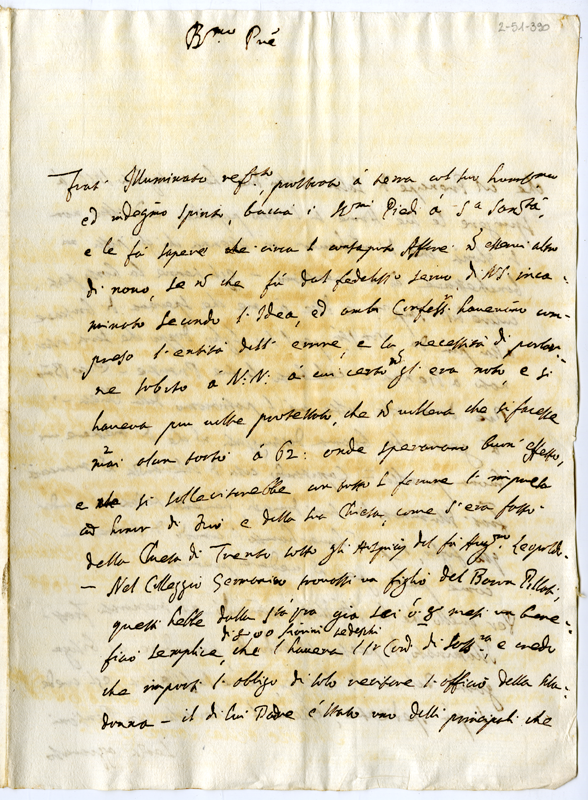 2-51-390
B.mo Pre
Frat' Illuminato prostrato à terra col suo
ed indegno spirito, baccia i SS.mi Piedi à S.a San.tà,
e le fà sapere che circa l' Affare altro
di novo, se nò che fù dal fedeliss.o servo di N.S. inca-
minato secondo l'Idea, ed ambi Confess.i haverano com-
preso l'entità dell' errore, e la necessità di
ne subito à N.N. à cui certo nò gl'era noto, e si
haveva più volte protestato, che nò voleva che si facesse
mai alcun torto à 62: onde speravano buon effetto,
e si sollecitarebbe con tutto l'impresa
ad honor di Dio e della sua Chiesa, come s'era fatto
della Chiesa di Trento sotto gli Auspicij del fù Aug.mo Leopoldo
- Nel Colleggio Germanico trovassi un figlio del Baron Pilati,
questi hebbe dalla già sei ò 8 mesi un bene-
di 5 ò 6 fiorini tedeschi
ficio semplice, che l'haveva e credo
che importi l'obligo di solo recitare l'officio della Ma-
donna - il di lui Padre è stato uno delli principali che